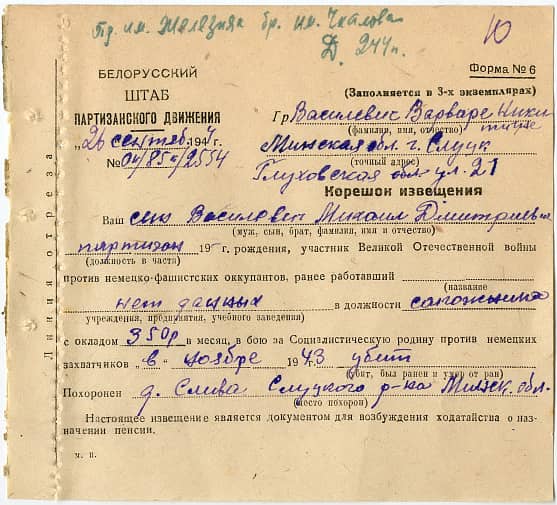 Пд. им. Железняк бр. им. Чкалова
Д. 244 п.
10
БЕЛОРУССКИЙ
ШТАБ
ПАРТИЗАНСКОГО ДВИЖЕНИЯ
"26 сентяб. 1944 г.
№ 04/85к/2554
Форма № 6
(Заполняется в 3-х экземплярах)
Гр. Василевич Варваре Ники
(фамилия, имя, отчество) тична
Минская обл. г. Слуцк
(точный адрес)
Глуховская ул. 21
Корешок извещения
Ваш сын Василевич Михаил Дмитриевич
(муж, сын, брат, фамилия, имя и отчество)
партизан 19 г. рождения, участник Великой Отечественной войны
(должность в части)
против немецко-фашистских оккупантов, ранее работавший
(название
нет данных в должности сапожника
учреждения, предприятия, учебного заведения)
с окладом 350р в месяц, в бою за Социалистическую родину против немецких
захватчиков "в" ноябре 1943 убит
(убит, был ранен и умер от ран)
Похоронен д. Слива Слуцкого р-на Минск. обл.
(место похорон)
Настоящее извещение является документом для возбуждения ходатайства о на-
значении пенсии.
м. п.
Линия отреза